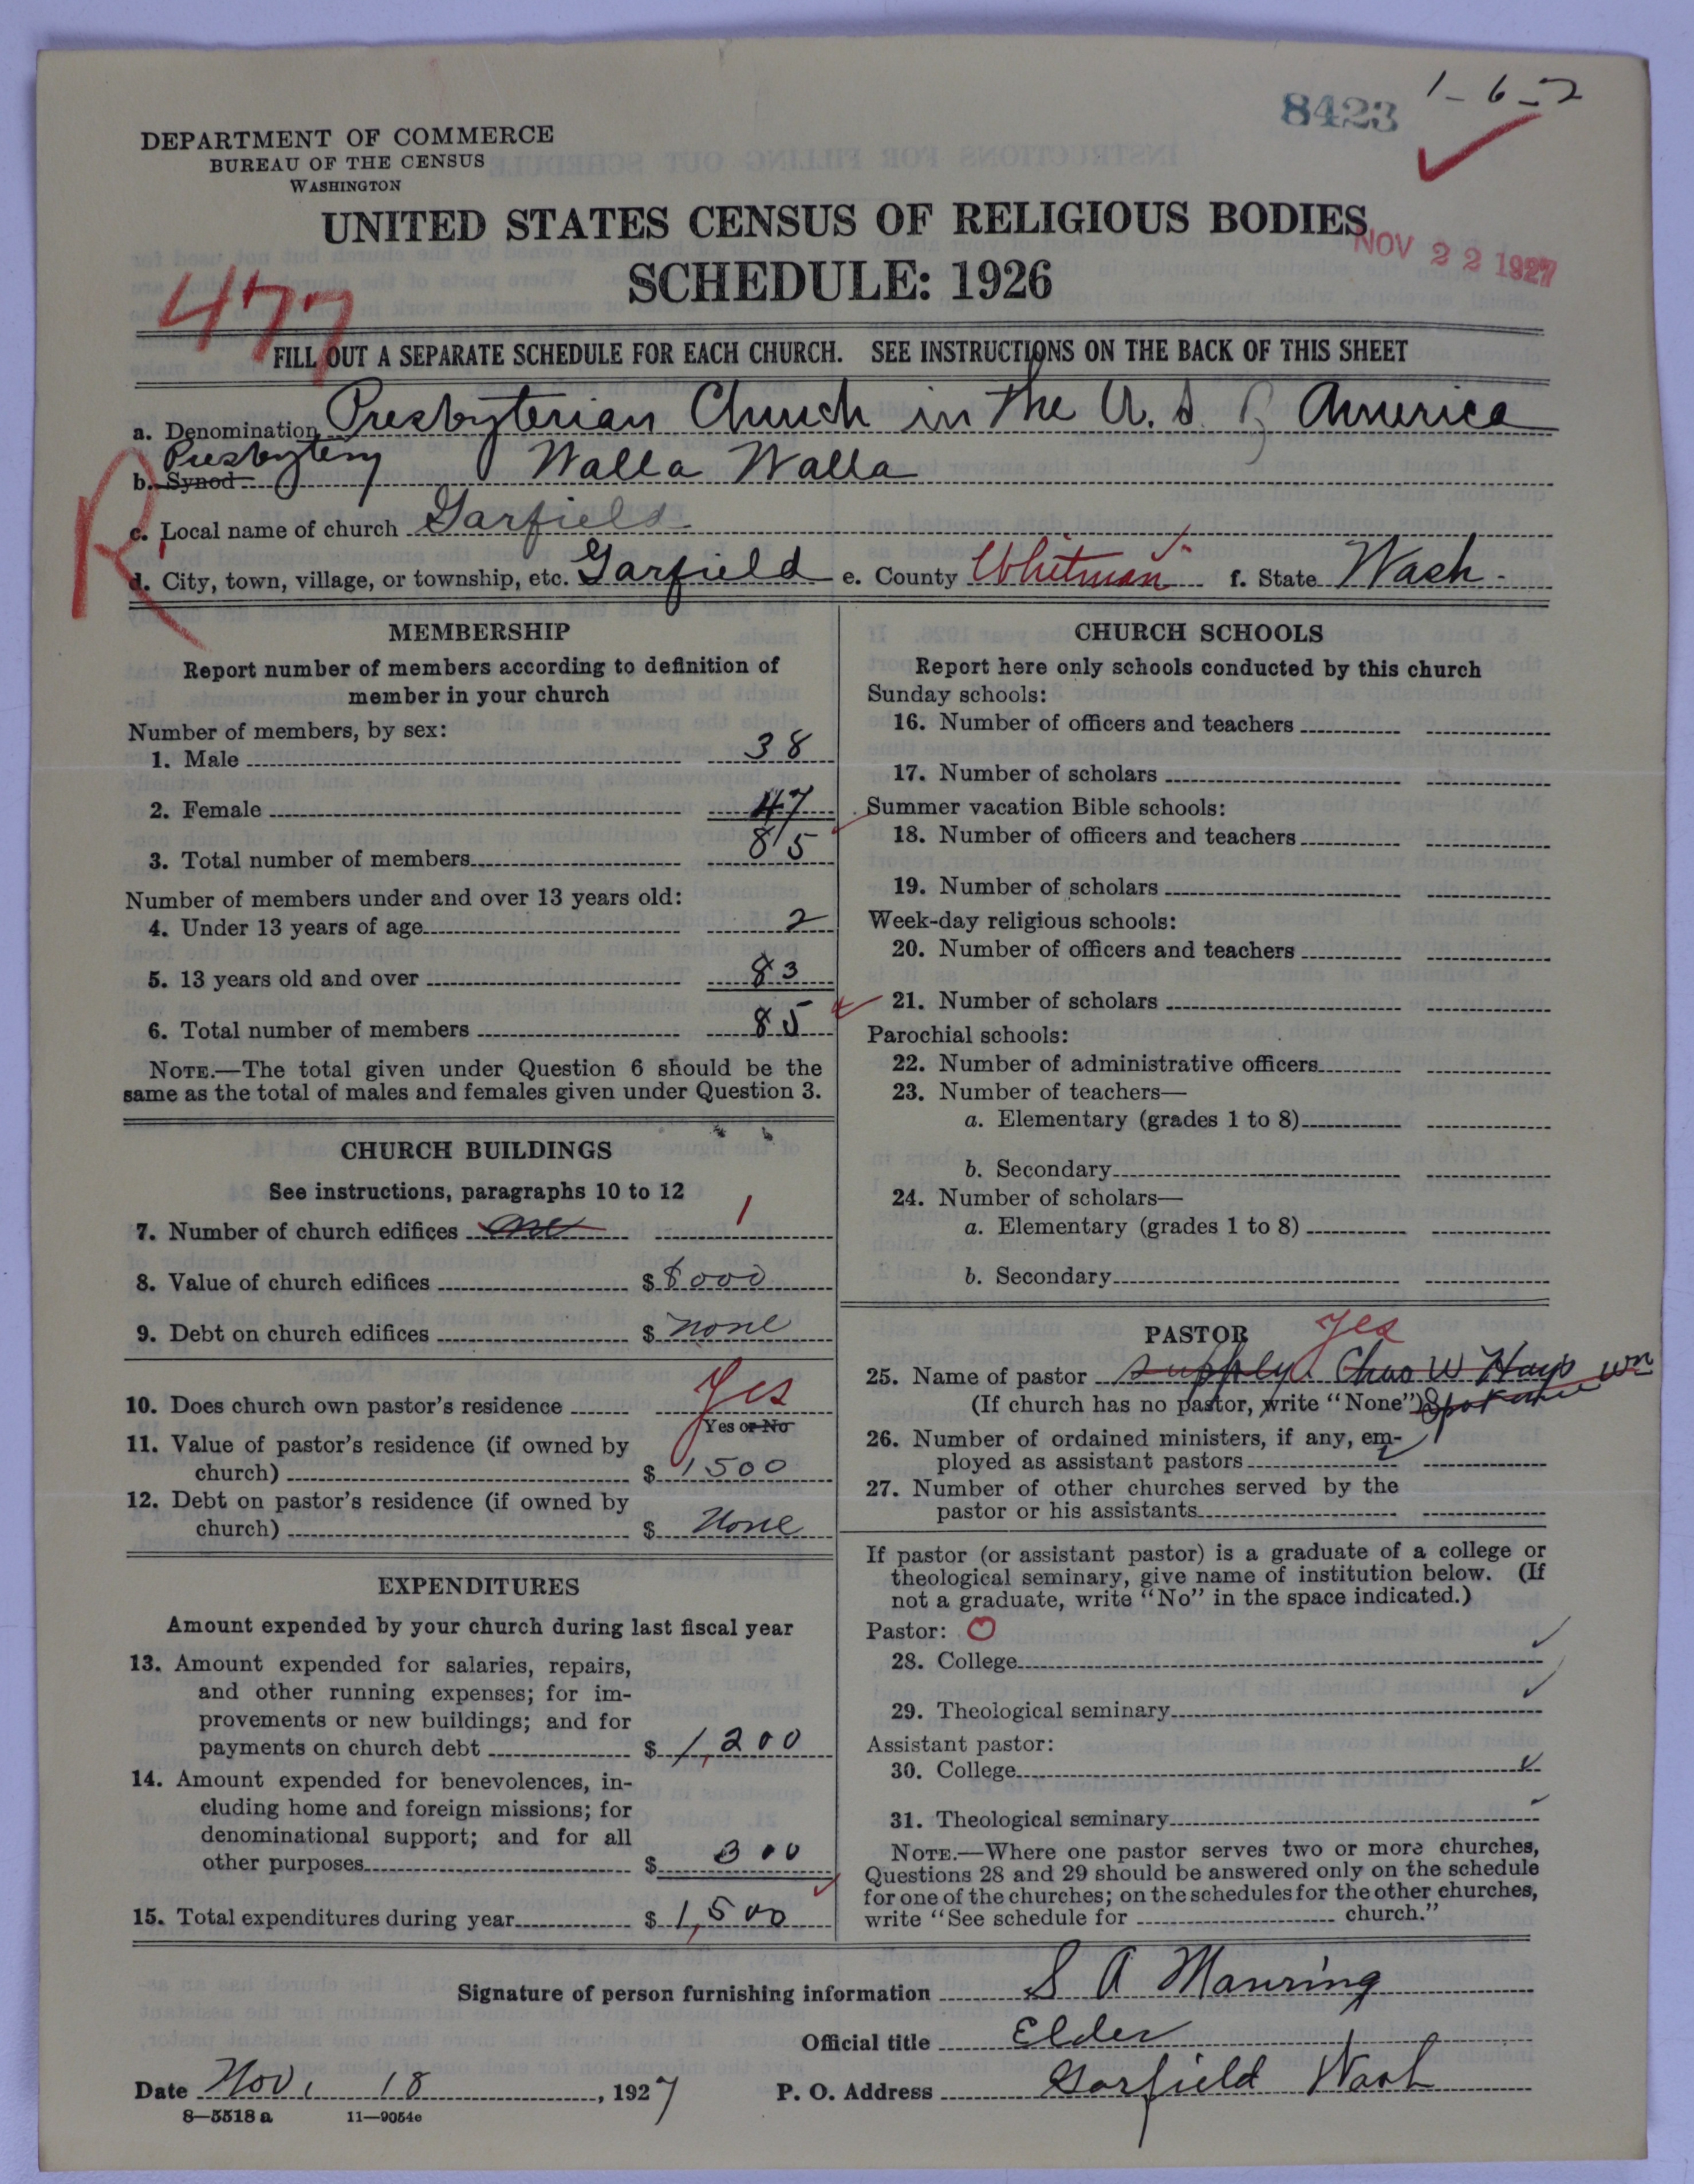 8423 1-6-2
DEPARTMENT OF COMMERCE
BUREAU OF THE CENSUS
WASHINGTON
UNITED STATES CENSUS OF RELIGIOUS BODIES
NOV 22 1927
SCHEDULE: 1926
477
FILL OUT A SEPARATE SCHEDULE FOR EACH CHURCH. SEE INSTRUCTIONS ON THE BACK OF THIS SHEET
a. Denomination Presbyterian Church in the U. S. of America
Presbytery
b. Synod Walla Walla
R
c. Local name of church Garfield
d. City, town, village, or township, etc. Garfield e. County Whitman f. State Wash.
MEMBERSHIP
Report number of members according to definition of
member in your church
Number of members, by sex:
1. Male 38
2. Female 47
3. Total number of members 85
Number of members under and over 13 years old:
4. Under 13 years of age 2
5. 13 years old and over 83
6. Total number of members 85
NOTE.—The total given under Question 6 should be the
same as the total of males and females given under Question 3.
CHURCH BUILDINGS
See instructions, paragraphs 10 to 12
7. Number of church edifices one 1
8. Value of church edifices $ 8000
9. Debt on church edifices $ none
10. Does church own pastor's residence Yes
Yes or No
11. Value of pastor's residence (if owned by
church) $ 1500
12. Debt on pastor's residence (if owned by
church) $ None
EXPENDITURES
Amount expended by your church during last fiscal year
13. Amount expended for salaries, repairs,
and other running expenses; for im-
provements or new buildings; and for
payments on church debt $ 1,200
14. Amount expended for benevolences, in-
cluding home and foreign missions; for
denominational support; and for all
other purposes $ 300
15. Total expenditures during year $ 1,500
CHURCH SCHOOLS
Report here only schools conducted by this church
Sunday schools:
16. Number of officers and teachers
17. Number of scholars
Summer vacation Bible schools:
18. Number of officers and teachers
19. Number of scholars
Week-day religious schools:
20. Number of officers and teachers
21. Number of scholars
Parochial schools:
22. Number of administrative officers
23. Number of teachers—
a. Elementary (grades 1 to 8)
b. Secondary
24. Number of scholars—
a. Elementary (grades 1 to 8)
b. Secondary
PASTOR Yes
25. Name of pastor supply. Chas W Hays wn
(If church has no pastor, write "None") Spokane
26. Number of ordained ministers, if any, em-
ployed as assistant pastors
27. Number of other churches served by the
pastor or his assistants
If pastor (or assistant pastor) is a graduate of a college or
theological seminary, give name of institution below. (If
not a graduate, write "No" in the space indicated.)
Pastor: O
28. College
29. Theological seminary
Assistant pastor:
30. College
31. Theological seminary
NOTE.—Where one pastor serves two or more churches,
Questions 28 and 29 should be answered only on the schedule
for one of the churches; on the schedules for the other churches,
write "See schedule for church."
Signature of person furnishing information S A Manring
Official title Elder
Date Nov. 18, 1927 P. O. Address Garfield Wash
8—5518 a 11—9054e